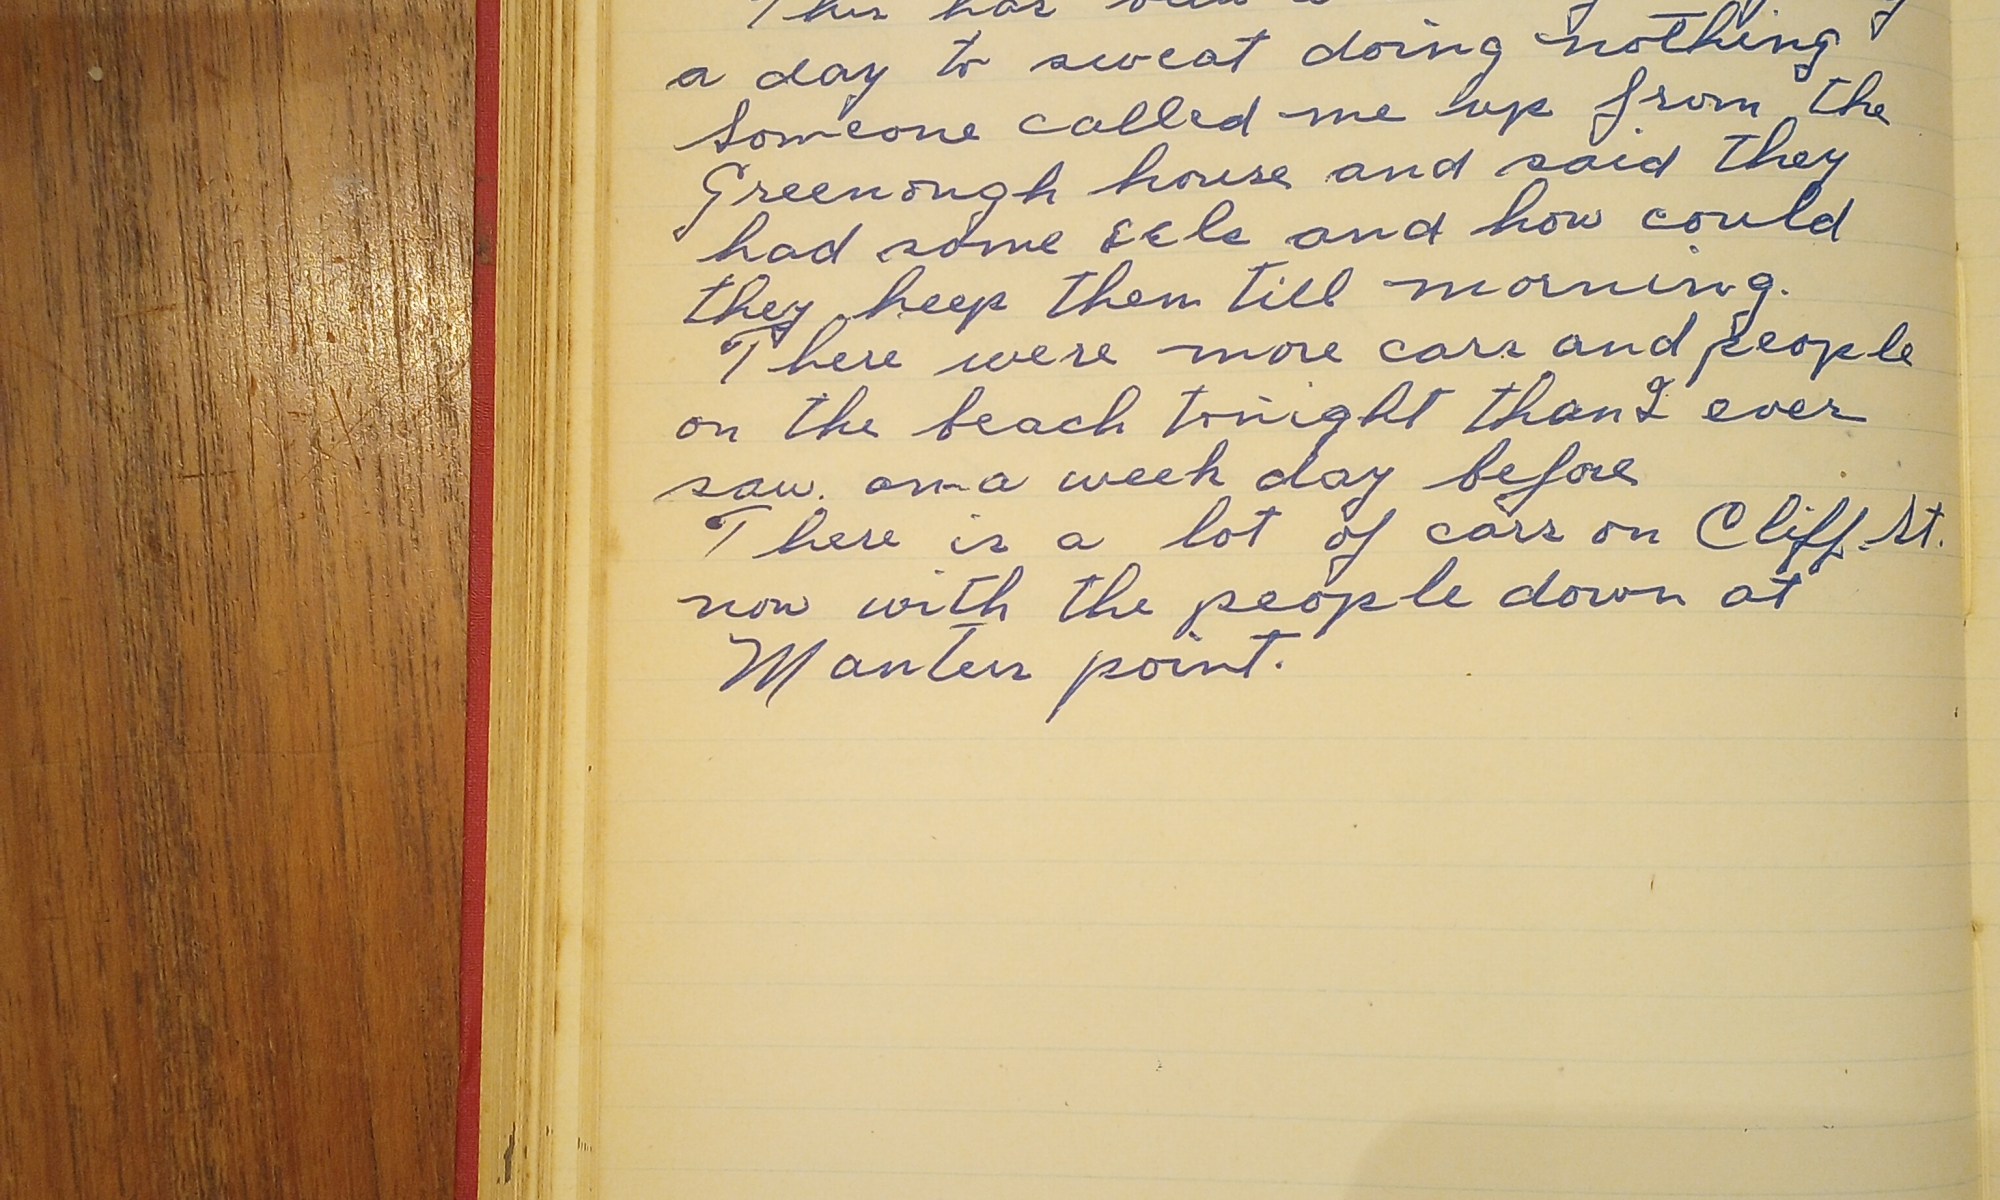 This has been a
a day to sweat doing nothing
Someone called me up from the
Greenough house and said they
had some eels and how could
they keep them till morning.
There were more cars and people
on the beach tonight than I ever
saw. on a week day before
There is a lot of cars on Cliff St.
now with the people down at
Manters point.